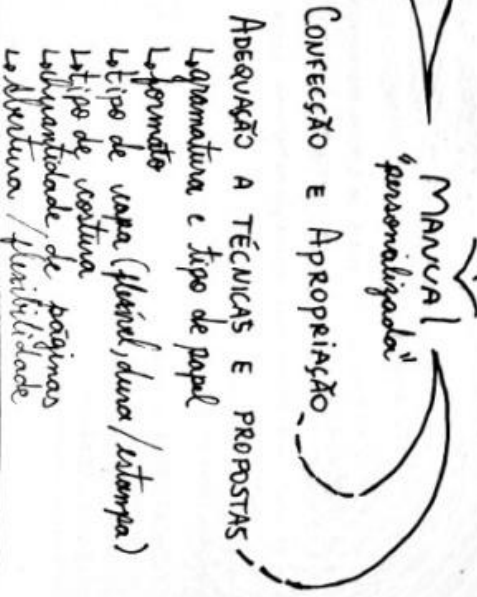 MANUAL
"personalizada"
CONFECÇÃO E APROPRIAÇÃO
ADEQUAÇÃO A TÉCNICAS E PROPOSTAS
↳ gramatura e tipo de papel
↳ formato
↳ tipo de capa (flexível, dura/estampa)
↳ tipo de costura
↳ quantidade de páginas
↳ abertura / flexibilidade